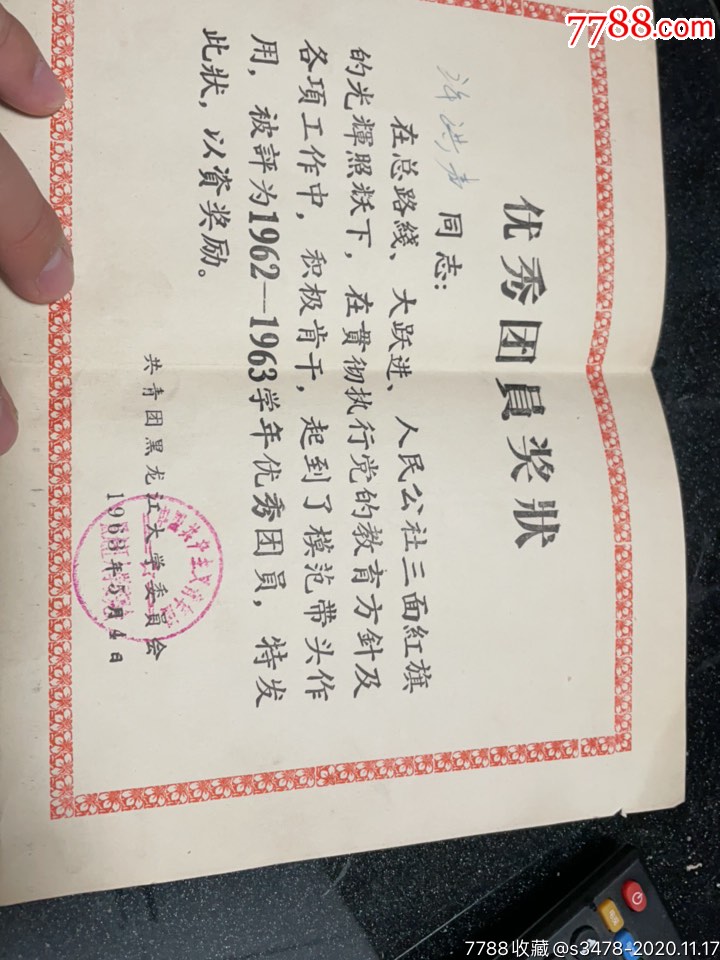 7788.com
优秀团員奖狀
同志：
在总路綫、大跃进、人民公社三面紅旗
的光輝照躭下，在貫彻执行党的教育方針及
各項工作中，积极肯干，起到了模范带头作
用，被評为1962—1963学年优秀团員，特发
此狀，以资奖励。
共青团黑龙江大学委員会
1963年5月4日
7788收藏@s3478-2020.11.17